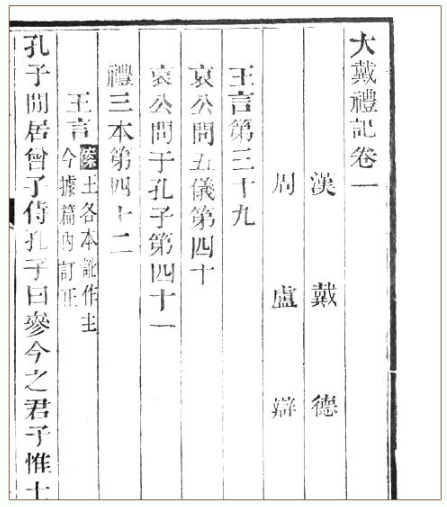 大戴禮記卷一
漢 戴 德
周 盧 辯
王言第三十九
哀公問五儀第四十
哀公問于孔子第四十一
禮三本第四十二
王言 案王各本訛作主
今據篇內訂正
孔子閒居曾子侍孔子曰參今之君子惟士